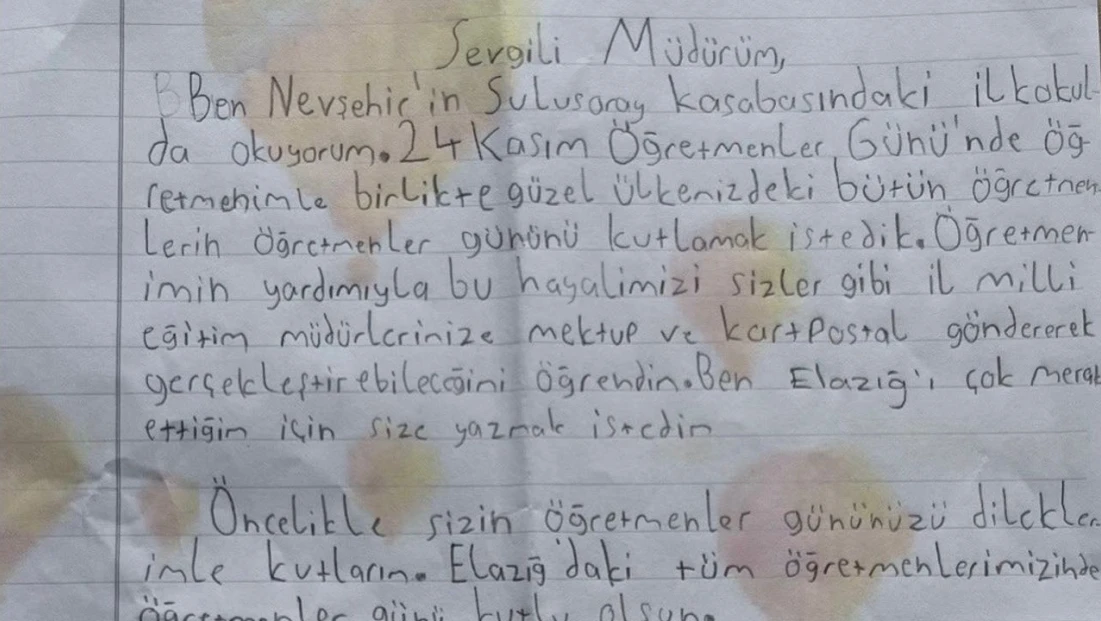 Sevgili Müdürüm,
Ben Nevşehir'in Sulusaray kasabasındaki ilkokul-
da okuyorum. 24 Kasım Öğretmenler Günü'nde öğ-
retmenimle birlikte güzel ülkenizdeki bütün öğretmen-
lerin öğretmenler gününü kutlamak istedik. Öğretmen-
imin yardımıyla bu hayalimizi sizler gibi il milli
eğitim müdürlerinize mektup ve kartpostal göndererek
gerçekleştirebileceğini öğrendim. Ben Elazığ'ı çok merak
ettiğim için size yazmak istedim
Öncelikle sizin öğretmenler gününüzü dilekler
imle kutlarım. Elazığ'daki tüm öğretmenlerimizinde
öğretmenler günü kutlu olsun.